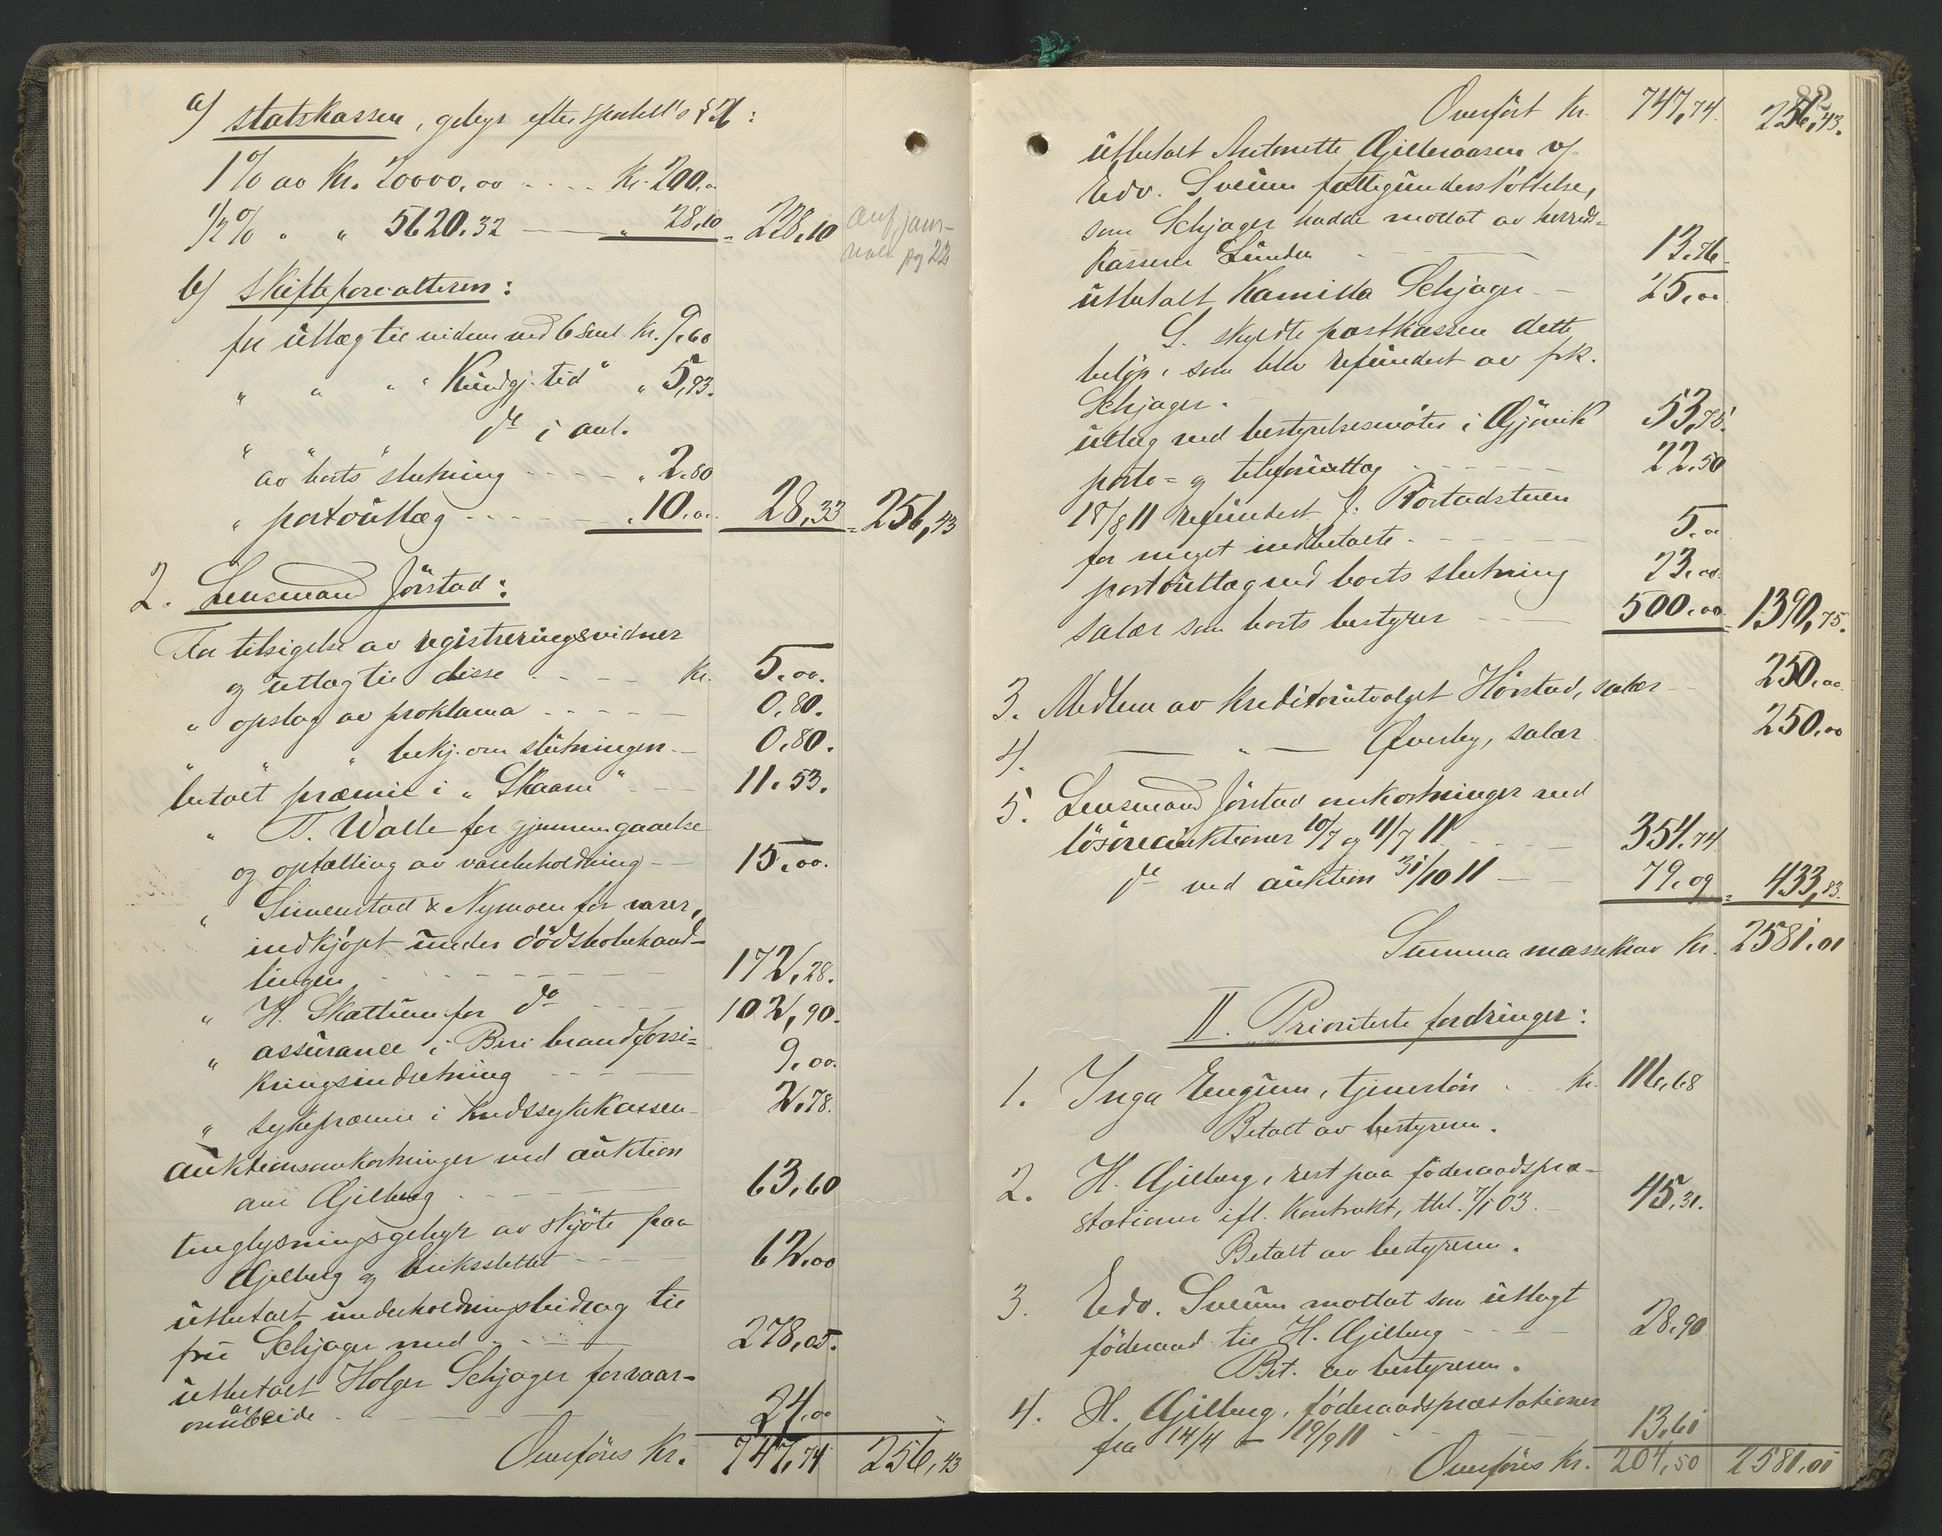 a) Statskassen, gebyr efter sportell's § 76:
1 % av Kr. 20000,00 ---- Kr. 200,00
1/2 % " " 5620.32 ---- " 28,10 = 228,10
pg 22
b) Skifteforvalteren:
for utlæg til vidner ved 6 Kr. 9,60
" " " "Kundgj.tid" " 5,93.
" " do i avl.
" av boets slutning ---- " 2.80
" portoutlæg ---- " 10.00 28,33 = 256,43
2. Lensmand Jörstad:
For tilsigelse av registreringsvidner
og utlæg til disse ---- Kr. 5.00.
" opslag av proklama ---- 0.80.
" " " bekj. om slutningen -- 0.80.
betalt præmie i "Skaane" --- 11.53.
" T. Walle for gjennemgaaelse
og optælling av varebeholdning -- 15.00.
" Simenstad & Nymoen for varer,
indkjøpt under dödsbobehand-
lingen ---- 172,28.
" H. Skattum for do ---- 102,90.
" assurance i Biri brandforsi-
kringsindretning ---- 9.00.
" sykepræmie i kredssykekassen- 2.78.
auktionsomkostninger ved auktion
over Gjilberg ---- 63,60
tinglysningsgebyr av skjöte paa
Gjilberg og Eriksslettet --- 62.00
utbetalt underholdningsbidrag til
fru Schjager med ---- 278,05.
utbetalt Holger Schjager for vaar-
onnarbeide ---- 24.00
Overföres Kr. 747,74 256,43
82
Overfört Kr. 747,74. 256,43.
utbetalt Antonette Gjilderaasen v/
Edv. Sveum fattigunderstöttelse,
som Schjager hadde mottat av herreds-
kassen Lunden ---- 13.76
utbetalt Kamilla Schjager -- 25.00
S. skyldte postkassen dette
belöp, som blev refundert av frk.
Schjager.
utlæg ved bestyrelsesmöter i Gjövik 53,75.
porto- og telefonutlæg ---- 22.50
18/8 11 refundert J. Röstadstuen
for meget indbetalte ---- 5.00
portoutlæg ved boets slutning 23.00.
salær som boets bestyrer ---- 500.00 = 1390,75.
3. Medlem av kreditorutvalget Hörstad, salær -- 250.00
4. — " — Överby, salær 250.00
5. Lensmand Jörstad omkostninger ved
lösöreauktioner 10/7 og 11/7 11 ---- 354.74
do ved auktion 31/10 11 --- 79.09 = 433,83.
Summa massekrav Kr. 2581.01
II. Prioriterte fordringer:
1. Inga Engum, tjenerlön --- Kr. 116,68
Betalt av bestyreren.
2. H. Gjilberg, rest paa föderaadspræ-
stationer ifl. kontrakt, thl. 7/1 03. -- 45.31.
Betalt av bestyreren.
3. Edv. Sveum mottat som utlagt
föderaad til H. Gjilberg ---- 28.90
Bet. av bestyreren.
4. H. Gjilberg, föderaadspræstationer
fra 14/4 - 19/9 11 ---- 13.61
Overföres Kr. 204,50 2581,01